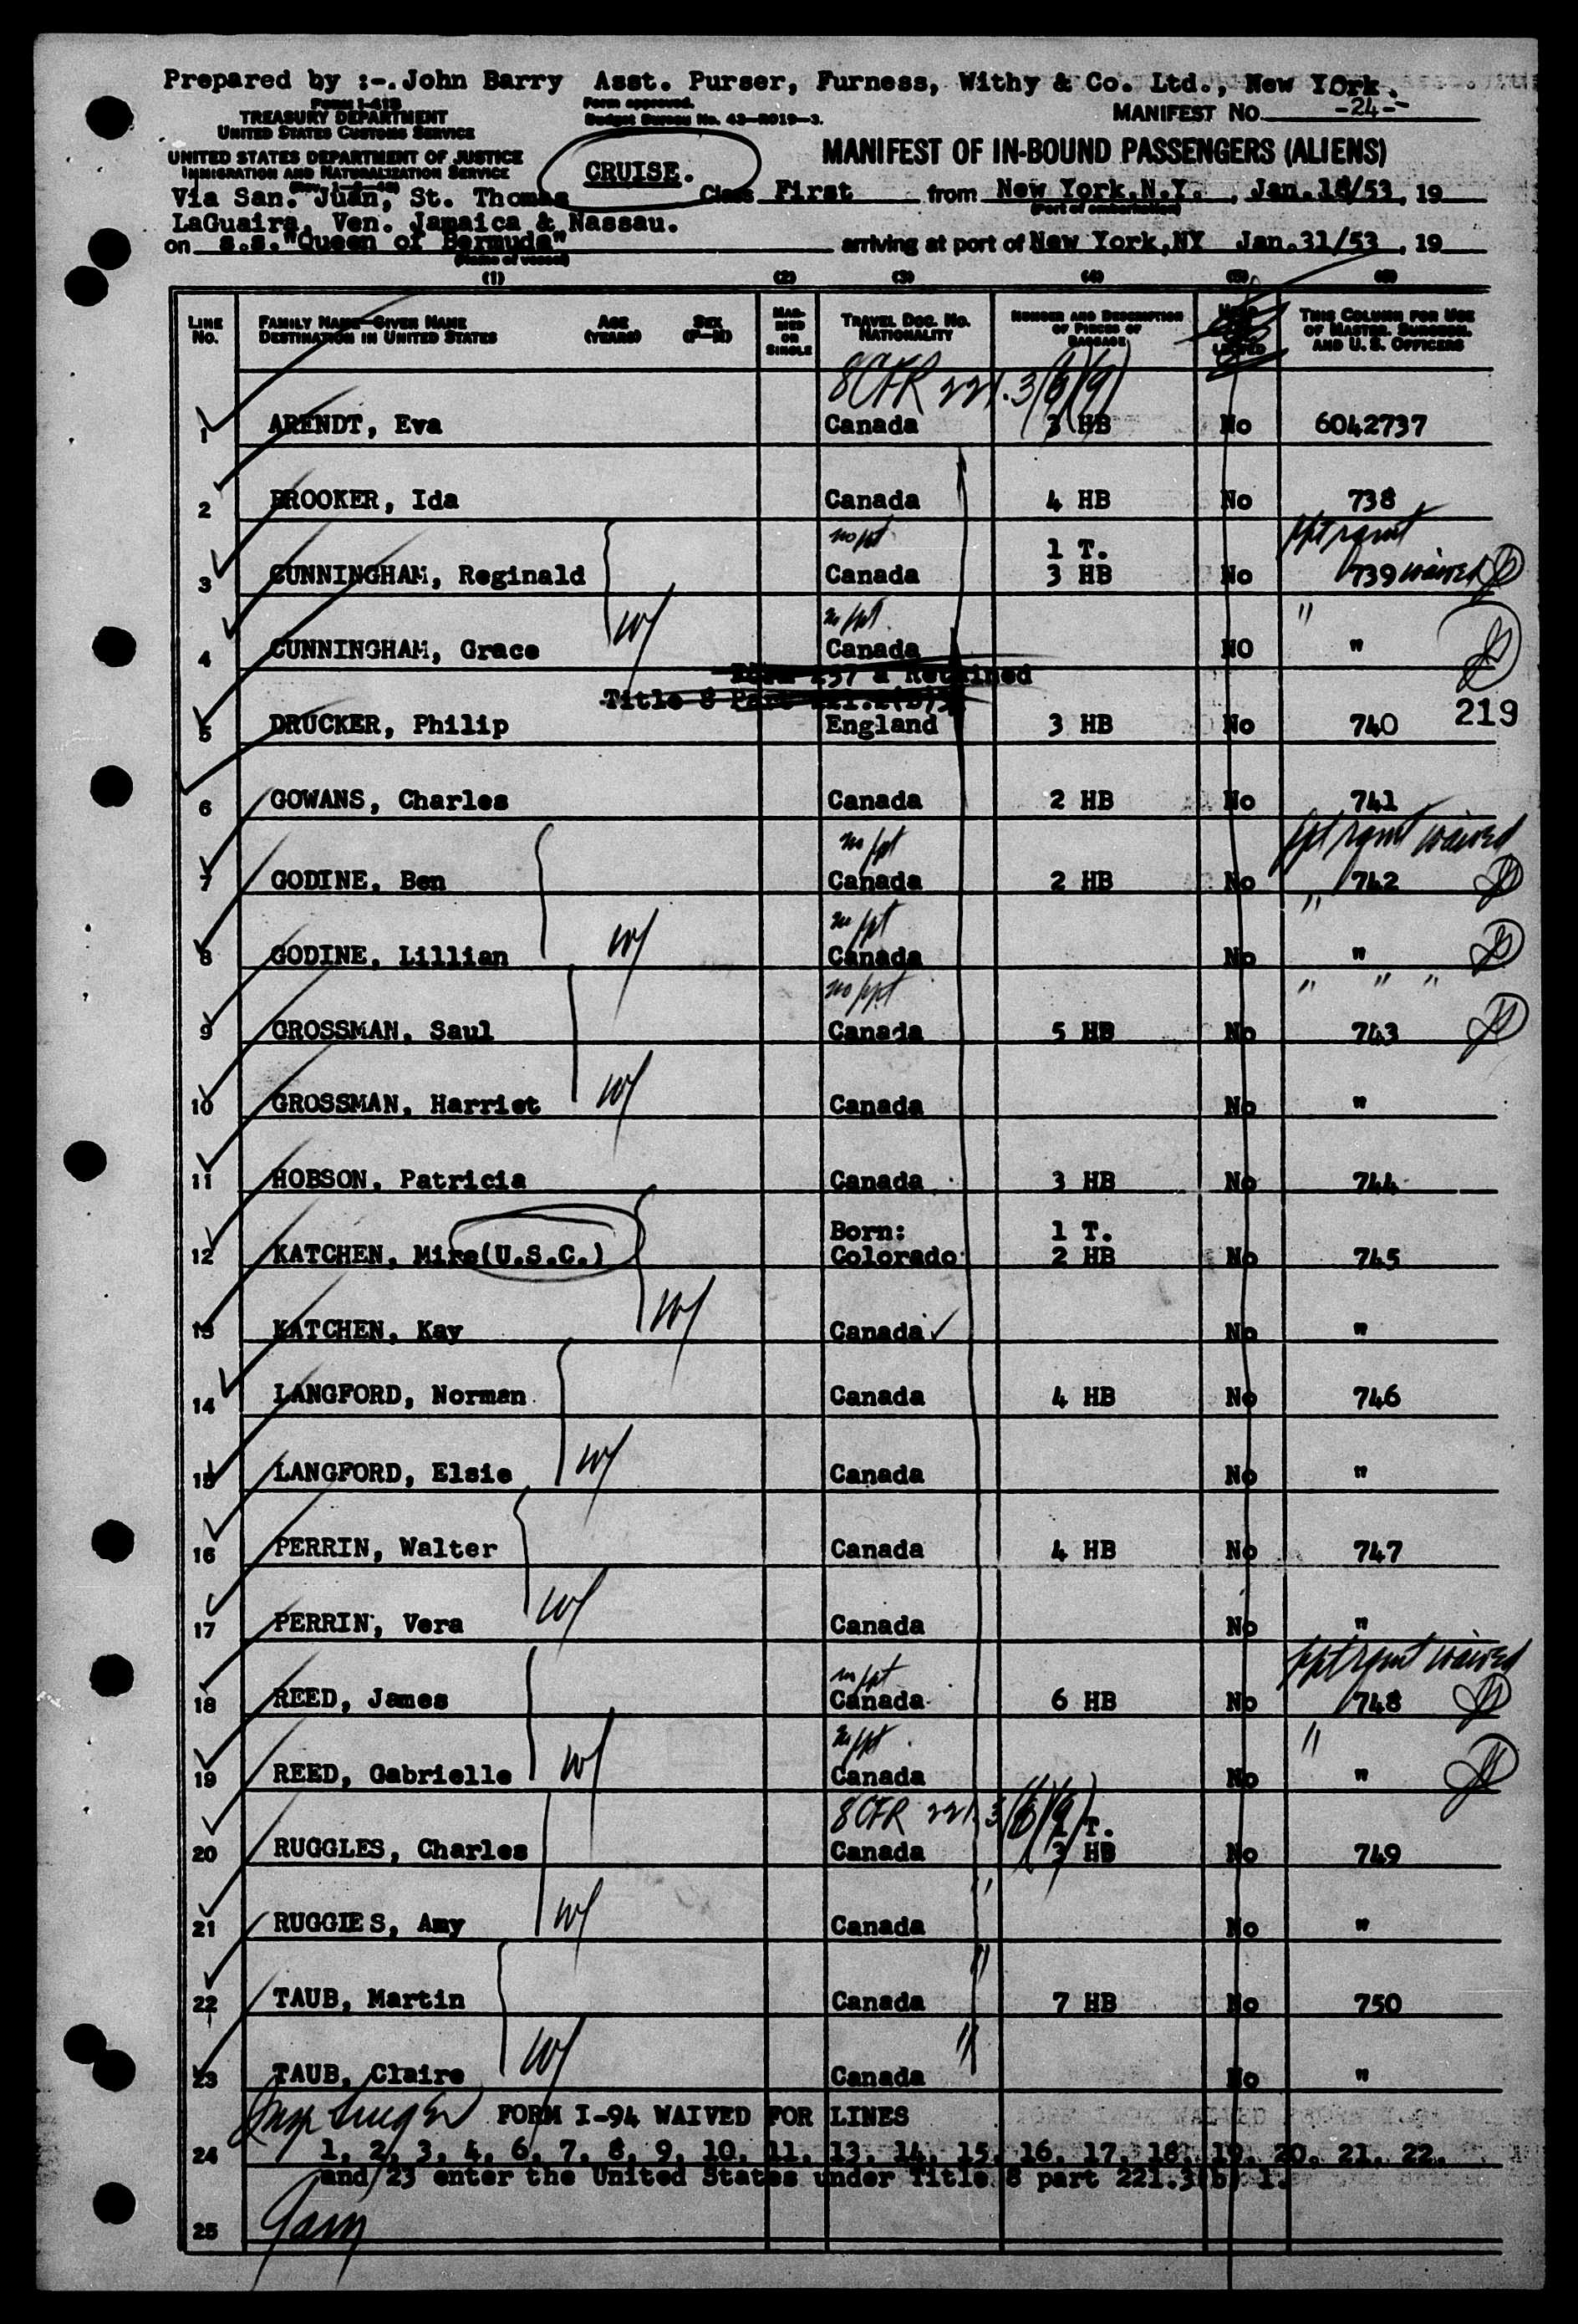 Prepared by :-. John Barry Asst. Purser, Furness, Withy & Co. Ltd., New YOrk.
Form I-418
TREASURY DEPARTMENT
UNITED STATES CUSTOMS SERVICE
Form approved.
Budget Bureau No. 43-R019-3.
MANIFEST NO. -24-
UNITED STATES DEPARTMENT OF JUSTICE
IMMIGRATION AND NATURALIZATION SERVICE
CRUISE.
MANIFEST OF IN-BOUND PASSENGERS (ALIENS)
Via San. Juan, St. Thomas
Class First from New York, N.Y. , Jan.18/53 , 19
(Port of embarkation)
LaGuaira, Ven. Jamaica & Nassau.
on s.s."Queen of Bermuda" arriving at port of New York,NY Jan.31/53 , 19
(Name of vessel)
(1) (2) (3) (4) (5) (6)
LINE No.
FAMILY NAME—GIVEN NAME
DESTINATION IN UNITED STATES
AGE (YEARS)
SEX (F—M)
MARRIED OR SINGLE
TRAVEL DOC. NO. NATIONALITY
NUMBER AND DESCRIPTION OF PIECES OF BAGGAGE
THIS COLUMN FOR USE OF MASTER, SURGEON, AND U. S. OFFICERS
8 CFR 221.3(b)(9)
1 ARENDT, Eva Canada 3 HB No 6042737
2 BROOKER, Ida Canada 4 HB No 738
no ppt 1 T. ppt rqmt
3 CUNNINGHAM, Reginald Canada 3 HB No 739 waived
w/ no ppt "
4 CUNNINGHAM, Grace Canada NO "
Form 257 a Retained
Title 8 Part 221.2(b)
5 DRUCKER, Philip England 3 HB No 740 219
6 GOWANS, Charles Canada 2 HB No 741
no ppt ppt rqmt waived
7 GODINE, Ben Canada 2 HB No 742
w/ no ppt "
8 GODINE, Lillian Canada No "
no ppt " " "
9 GROSSMAN, Saul Canada 5 HB No 743
w/
10 GROSSMAN, Harriet Canada No "
11 HOBSON, Patricia Canada 3 HB No 744
Born: 1 T.
12 KATCHEN, Mire(U.S.C.) Colorado 2 HB No 745
w/
13 KATCHEN, Kay Canada No "
14 LANGFORD, Norman Canada 4 HB No 746
w/
15 LANGFORD, Elsie Canada No "
16 PERRIN, Walter Canada 4 HB No 747
w/
17 PERRIN, Vera Canada No "
no ppt ppt rqmt waived
18 REED, James Canada 6 HB No 748
w/ no ppt "
19 REED, Gabrielle Canada No "
8 CFR 221.3(b)(9) 1 T.
20 RUGGLES, Charles Canada 3 HB No 749
w/ "
21 RUGGIES, Amy Canada No "
"
22 TAUB, Martin Canada 7 HB No 750
w/ "
23 TAUB, Claire Canada No "
FORM I-94 WAIVED FOR LINES
24 1, 2, 3, 4, 6, 7, 8, 9, 10, 11, 13, 14, 15, 16, 17, 18, 19, 20, 21, 22,
and 23 enter the United States under Title 8 part 221.3(b) 1.
25